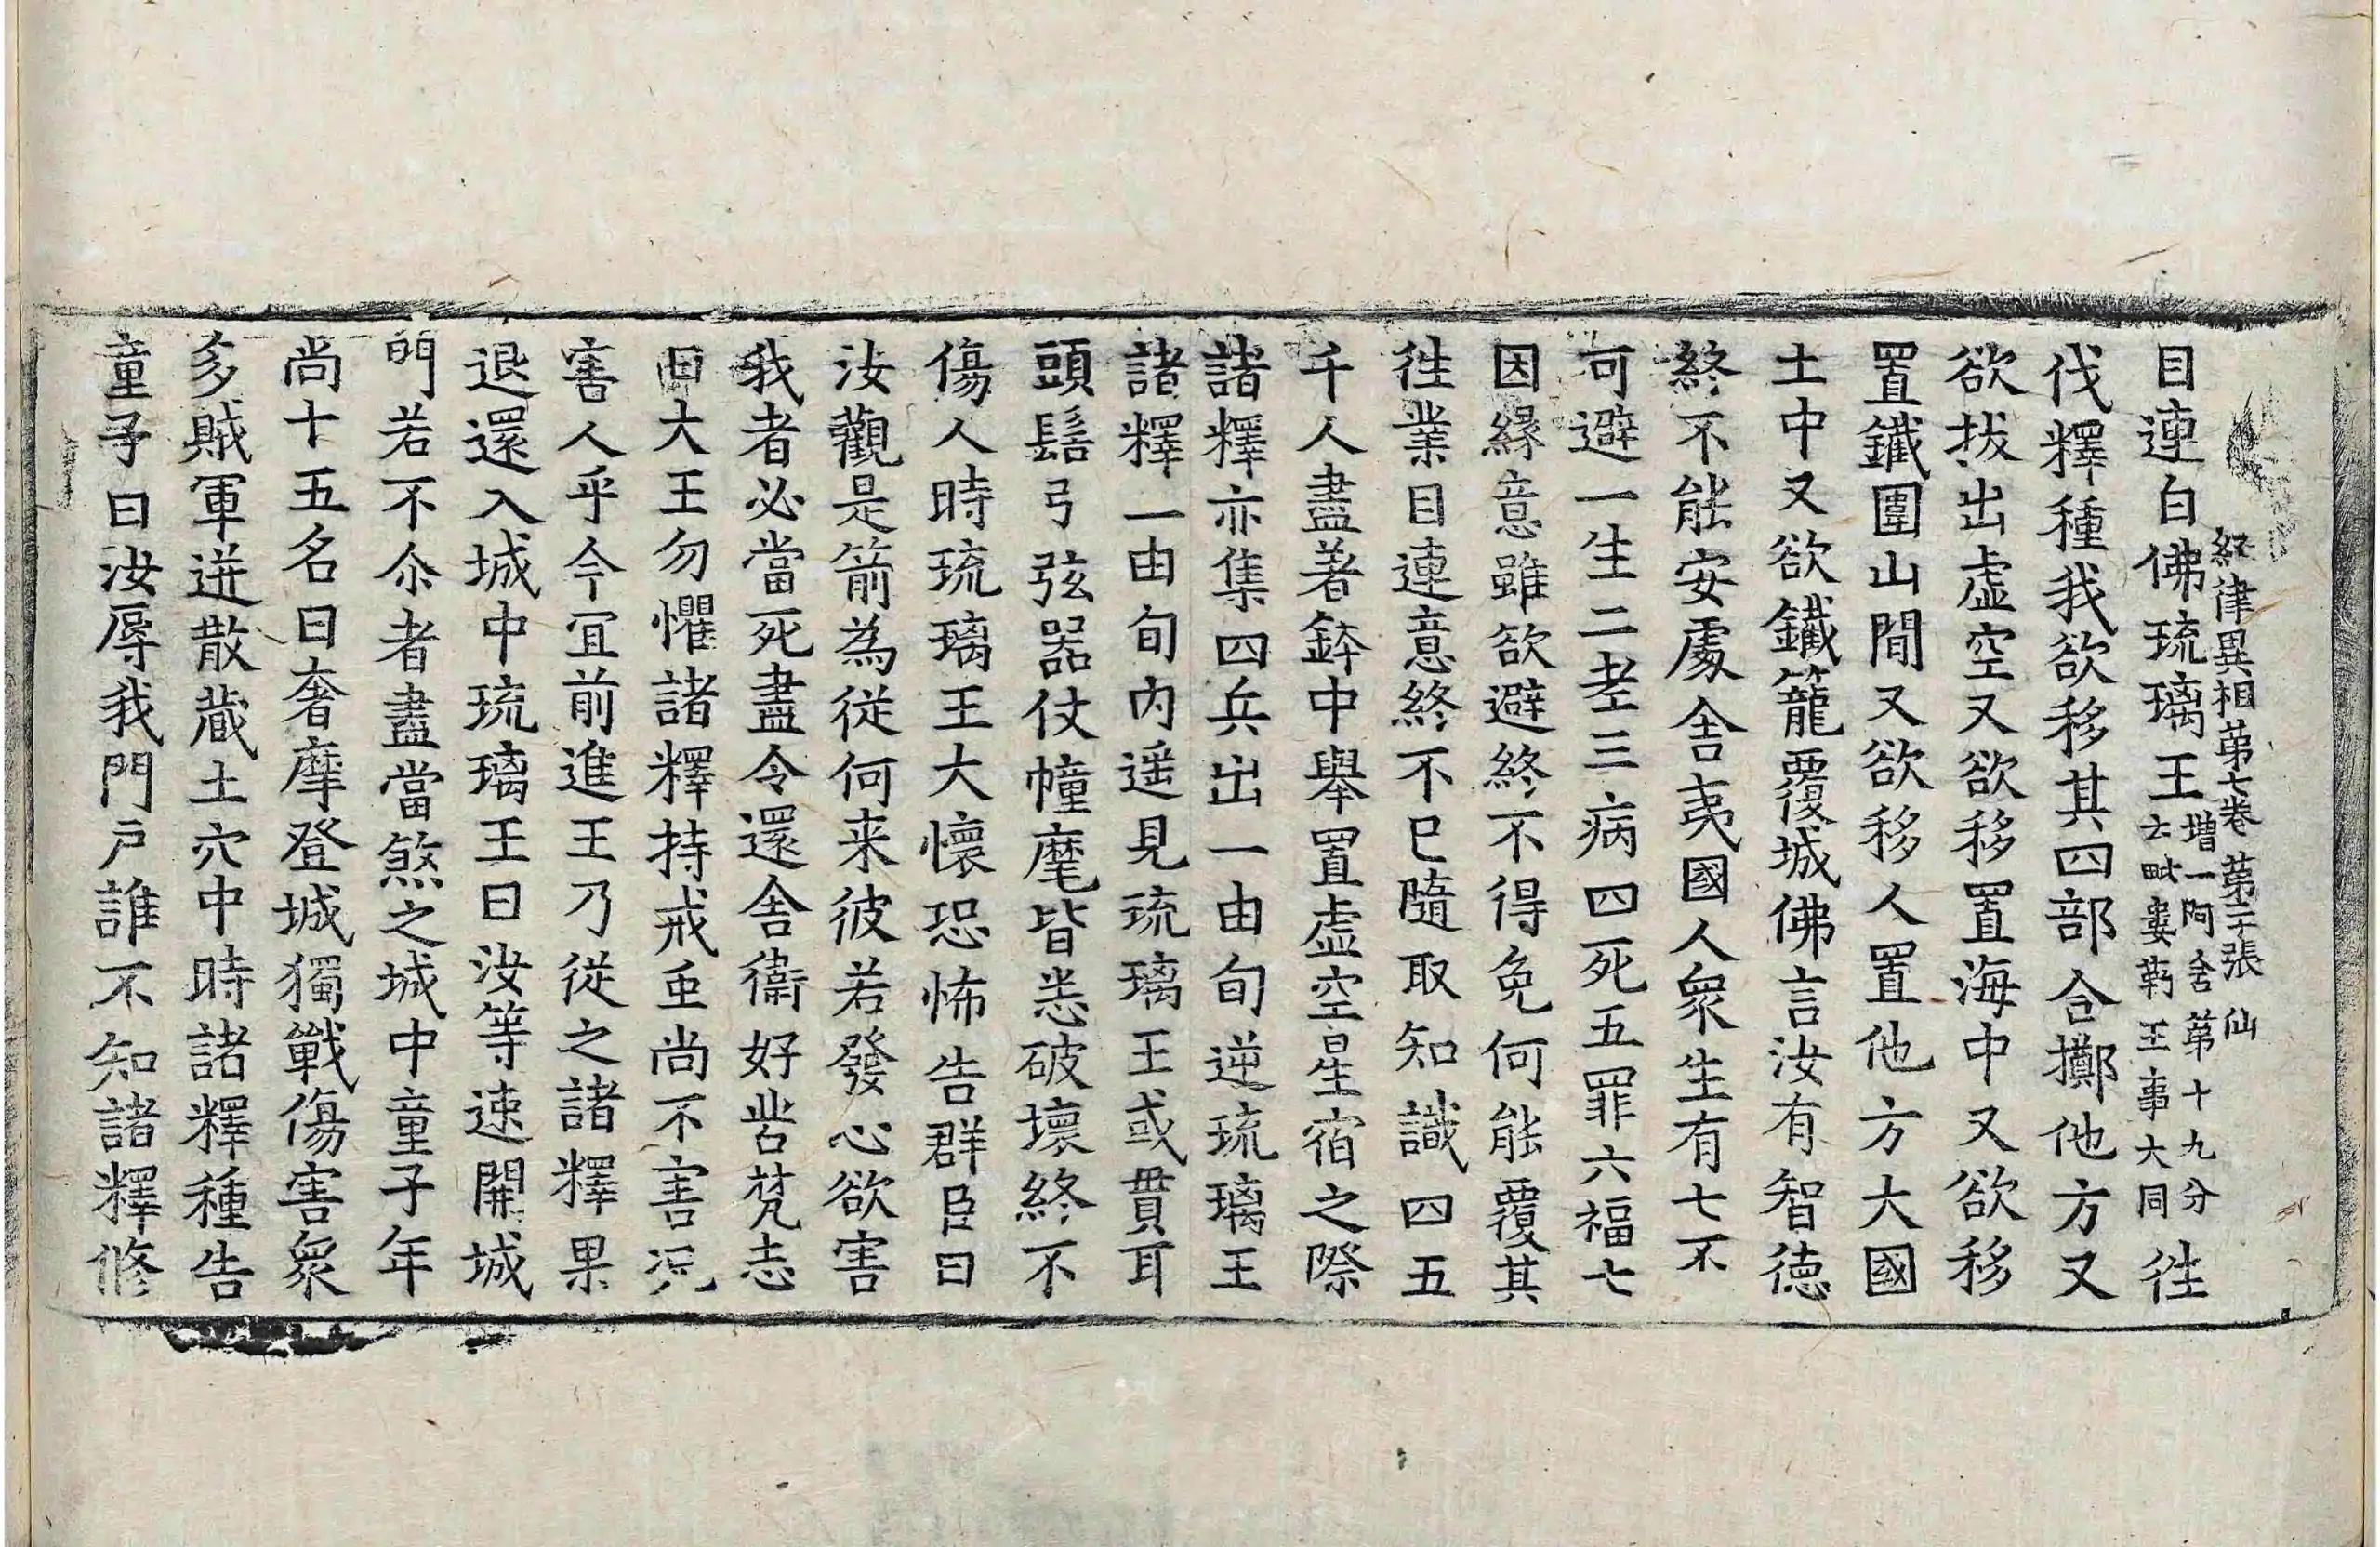 經律異相苐七卷 苐二十張 仙
目連白佛琉璃王增一阿含苐十九分云毗婁勒王事大同徃
伐釋種我欲移其四部合擲他方又
欲拔出虛空又欲移置海中又欲移
置鐵圍山間又欲移人置他方大國
土中又欲鐵籠覆城佛言汝有智德
終不能安處舍夷國人衆生有七不
可避一生二老三病四死五罪六福七
因緣意雖欲避終不得免何能覆其
徃業目連意終不已隨取知識四五
千人盡著鉢中舉置虛空星宿之際
諸釋亦集四兵出一由旬逆琉璃王
諸釋一由旬內遥見琉璃王或貫耳
頭髻弓弦器仗幢麾皆悉破壞終不
傷人時琉璃王大懷恐怖告群臣曰
汝觀是箭為從何来彼若發心欲害
我者必當死盡令還舍衞好苦梵志
曰大王勿懼諸釋持戒虫尚不害况
害人乎今冝前進王乃從之諸釋果
退還入城中琉璃王曰汝等速開城
門若不尒者盡當煞之城中童子年
尚十五名曰奢摩登城獨戰傷害衆
多賊軍迸散藏土穴中時諸釋種告
童子曰汝辱我門戶誰不知諸釋修